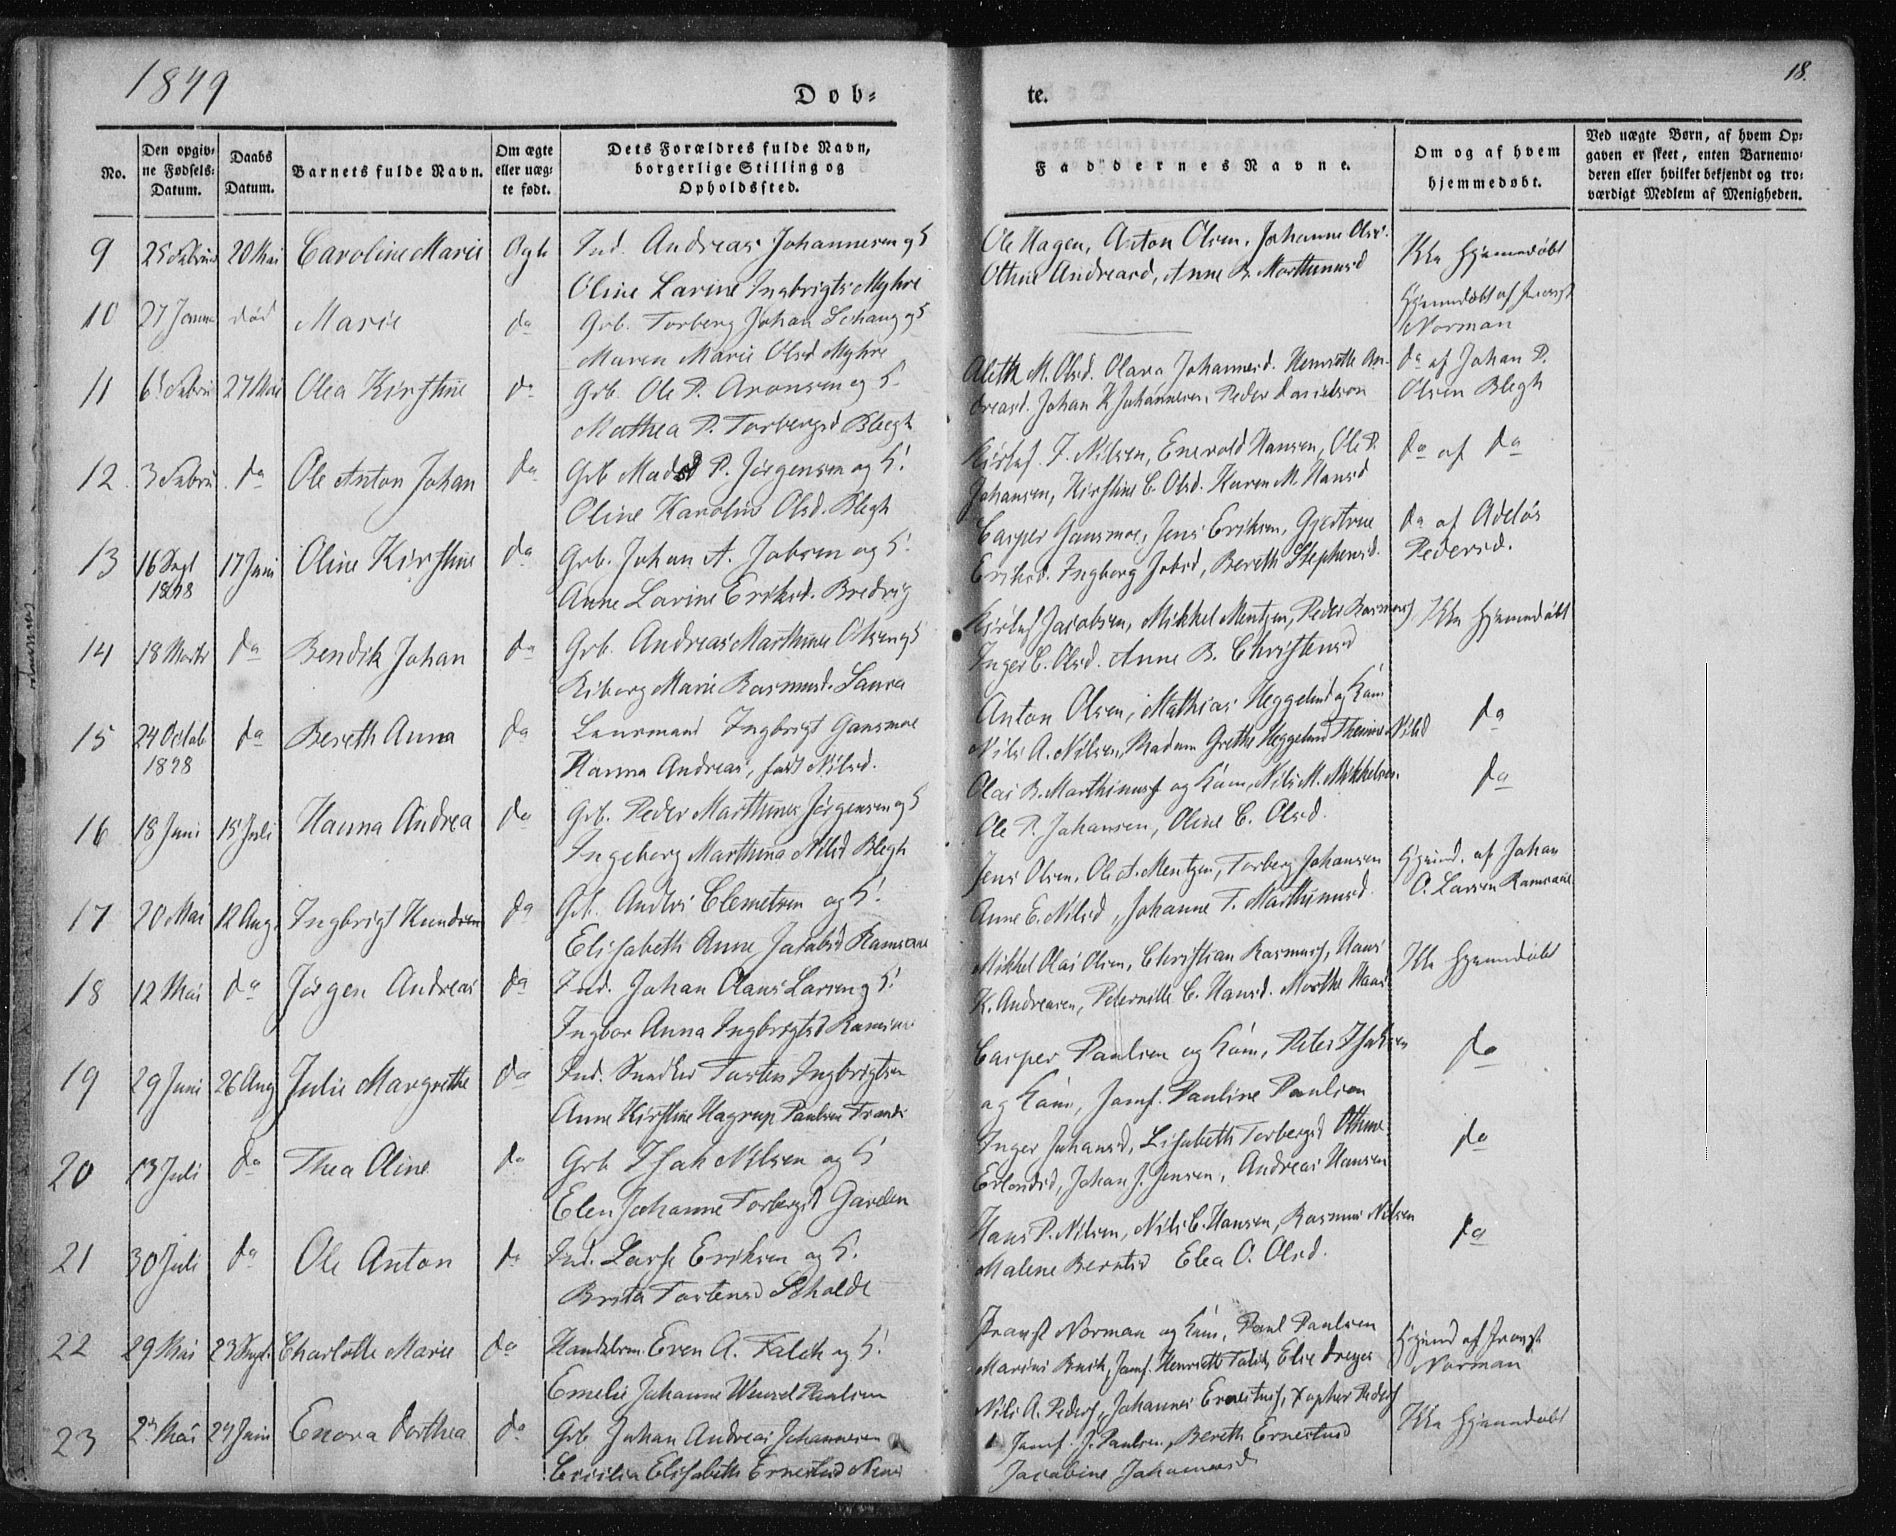 1849
Døb-
te.
18.
No.
Den opgiv-
ne Fødsels-
Datum.
Daabs
Datum.
Barnets fulde Navn.
Om ægte
eller uæg-
te født.
Dets Forældres fulde Navn,
borgerlige Stilling og
Opholdssted.
Faddernes Navne.
Om og af hvem
hjemmedøbt.
Ved uægte Børn, af hvem Op-
gaven er skeet, enten Barnemo-
deren eller hvilket bekjendt og tro-
værdigt Medlem af Menigheden.
9 20 Mai Caroline Marie Ind. Andreas Johannesen og H
Oline Lavine Ingbrigts Myhre
Ole Hagen, Anton Olsen, Johanne Olsd.
Othine Andreasd, Anne B. Marthinusd
Ikke hjemmedøbt
10 død Marie do Grb. Torberg Johan Schang og H
Maren Marie Olsd Myhre
Hjemmdøbt af Provst
Norman
11 27 Mai Olea Kirstine do Grb. Ole P. Aronsen og H.
Mathea P. Torbergsd Blegh
Aleth M. Olsd. Olava Johannesd. Henrette An-
dreasd. Johan K Johannesen, Peder Danielsen
do af Johan P.
Olsen Blegh
12. 3 Febru do Ole Anton Johan do Grb Mads P. Jørgensen og H.
Oline Karoline Olsd. Blegh
J. Nilsen, Enevold Hansen, Ole P.
Johansen, Kirstine C. Olsd. Karen M. Hansd
do af do
13 16 Sept 17 Juni Oline Kirstine do Grb. Johan A. Jobsen og H.
1848 Anne Lavine Eriksd. Bredvig
Casper Gansmoe, Jens Eriksen, Gjertrue
Eriksd. Ingborg Jobsd, Bereth Stephensd.
do af Adelös
Pedersd.
14 18 Marts do Bendik Johan do Grb. Andreas Marthinus Olsen og H
Marie Rasmusd. Laura
Jacobsen, Mikkel Mentzen, Peder Rasmus
Inger C. Olsd. Anne B. Christensd
Ikke hjemmdøbt
15 24 Octob do Bereth Anna do Ingbrigt Gansmoe
1848 Hanna Andrea, født Nilsd.
Anton Olsen, Mathias Heggelund og Kone
Nils A. Nilsen, Madam Grethe Heggelund Nilsd
do
16 18 Juni 15 Juli Hanna Andrea do Grb. Peder Marthinus Jørgensen og H
Ingeborg Marthina Nilsd Blegh
Olai B. Marthinus og Kone, Nils M. Mikkelsen.
Ole P. Johansen, Oline C. Olsd.
do
17 20 Mai 12 Aug Ingbrigt do Grb. Anders Clemetsen og H.
Elisabeth Anne Jakobsd Ramsaae
Jens Olsen, Ole A. Mentzen, Torberg Johansen
Anne E. Nilsd, Johanne T. Marthinusd.
Hjemd. af Johan
O. Larsen Ramsaae
18 12 Mai do Jørgen Andreas do Ind. Johan Olaus Larsen og H.
Ingbor Anna Ingbrigtsd
Mikkel Olai Olsen, Christian Rasmus, Hans
K. Andreasen, Peternille C. Hansd. Marthe Hansd
Ikke hjemmdøbt
19 29 Juni 26 Aug Julie Margrethe do Ind. Snedker Torsten Ingbrigtsen
Anne Kirstine Hagrup Paulsen
Casper Paulsen og Kone, Peter Isaksen
og Kone, Jomf. Pauline Paulsen
do
20 13 Juli do Thea Oline do Grb Isak Nilsen og H
Elen Johanne Torbergsd Garden
Inger Johansd, Lisabeth Torbergsd
Erlandsd, Johan J. Jensen, Andreas Hansen
do
21 30 Juli do Ole Anton do Ind. Lars Eriksen og H.
Brita Torstensd
Hans P. Nilsen, Nils C. Hansen, Rasmus Nilsen
Malene Berntsd Elea O. Olsd.
do
22 29 Mai 23 Sept. Charlotte Marie do Handelsm. Even A. Falch og H.
Emelie Johanne Wensel Paulsen
Provst Norman og Kone, Paul Paulsen
Marius Buck, Jomf. Henriette Falch, Elise Dreyer
Hjemd af Provst
Norman
23 Mai 24 Juni Enora Dorthea do Grb Johan Andreas Johannesen
Cecilia Elisabeth Ernestusd
Nils A. Peders, Johannes Ernestus, Peders
Jomf. J. Paulsen, Bereth Ernestusd
Jacobine Johannesd
Ikke hjemmdøbt